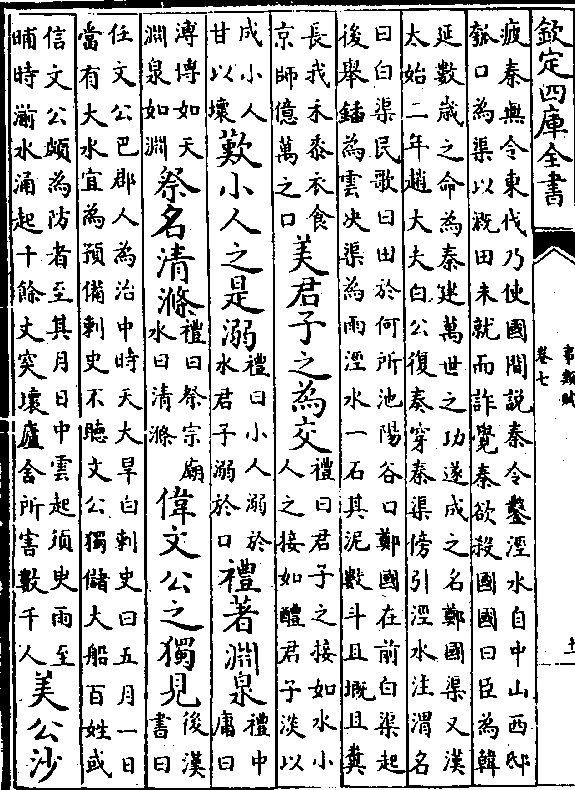 欽定四庫全書
事類賦
卷七
十一
疲秦無令東伐乃使國間説秦令鑿涇水自中山西邸
瓠口為渠以溉田未就而詐覺秦欲殺國國曰臣為韓
延數歲之命為秦建萬世之功遂成之名鄭國渠又漢
太始二年趙大夫白公復奏穿秦渠傍引涇水注渭名
曰白渠民歌曰田於何所池陽谷口鄭國在前白渠起
後舉鍤為雲決渠為雨涇水一石其泥數斗且溉且糞
長我禾黍衣食
京師億萬之口
美君子之為交
禮曰君子之接如水小
人之接如醴君子淡以
成小人
甘以壞
歎小人之是溺
禮曰小人溺於
水君子溺於口
禮著淵泉
禮中
庸曰
溥博如天
淵泉如淵
祭名清滌
禮曰祭宗廟
水曰清滌
偉文公之獨見
後漢
書曰
任文公巴郡人為治中時天大旱白刺史曰五月一日
當有大水宜為預備刺史不聽文公獨儲大船百姓或
信文公頗為防者至其月日中雲起湏臾雨至
晡時湔水涌起十餘丈突壞廬舍所害數千人
美公沙